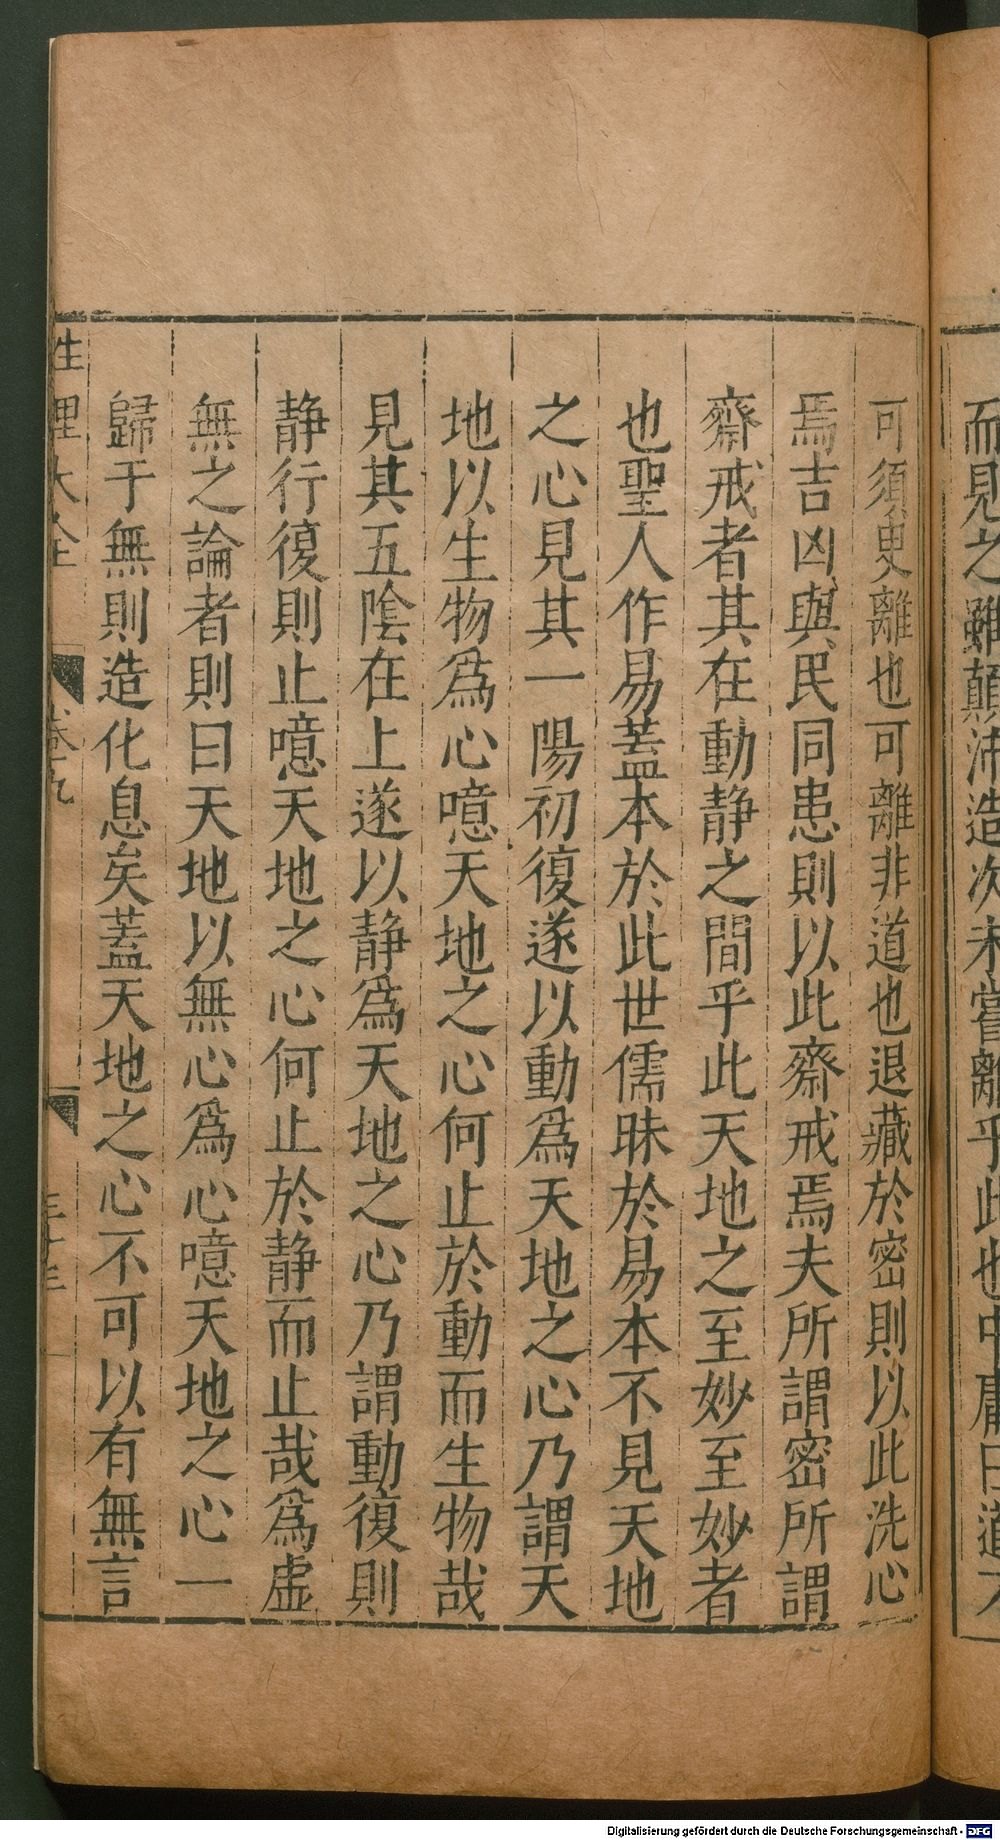 而見之雖顛沛造次未嘗離乎此也中庸曰道不
可須臾離也可離非道也退藏於密則以此洗心
焉吉凶與民同患則以此齋戒焉夫所謂密所謂
齋戒者其在動静之間乎此天地之至妙至妙者
也聖人作易蓋本於此世儒昧於易本不見天地
之心見其一陽初復遂以動爲天地之心乃謂天
地以生物爲心噫天地之心何止於動而生物哉
見其五陰在上遂以静爲天地之心乃謂動復則
静行復則止噫天地之心何止於静而止哉爲虚
無之論者則曰天地以無心爲心噫天地之心一
歸于無則造化息矣蓋天地之心不可以有無言
性理大全 卷九
Digitalisierung gefördert durch die Deutsche Forschungsgemeinschaft - DFG